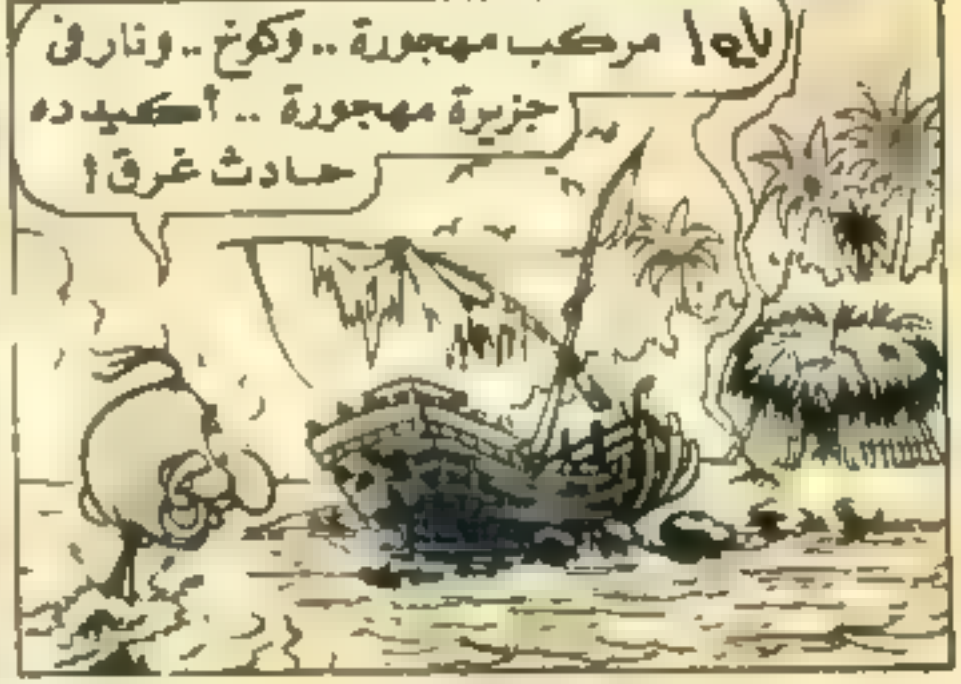 ياه ! مركب مهجورة .. وكوخ .. ونار فى
جزيرة مهجورة .. أكيد ده
حادث غرق !